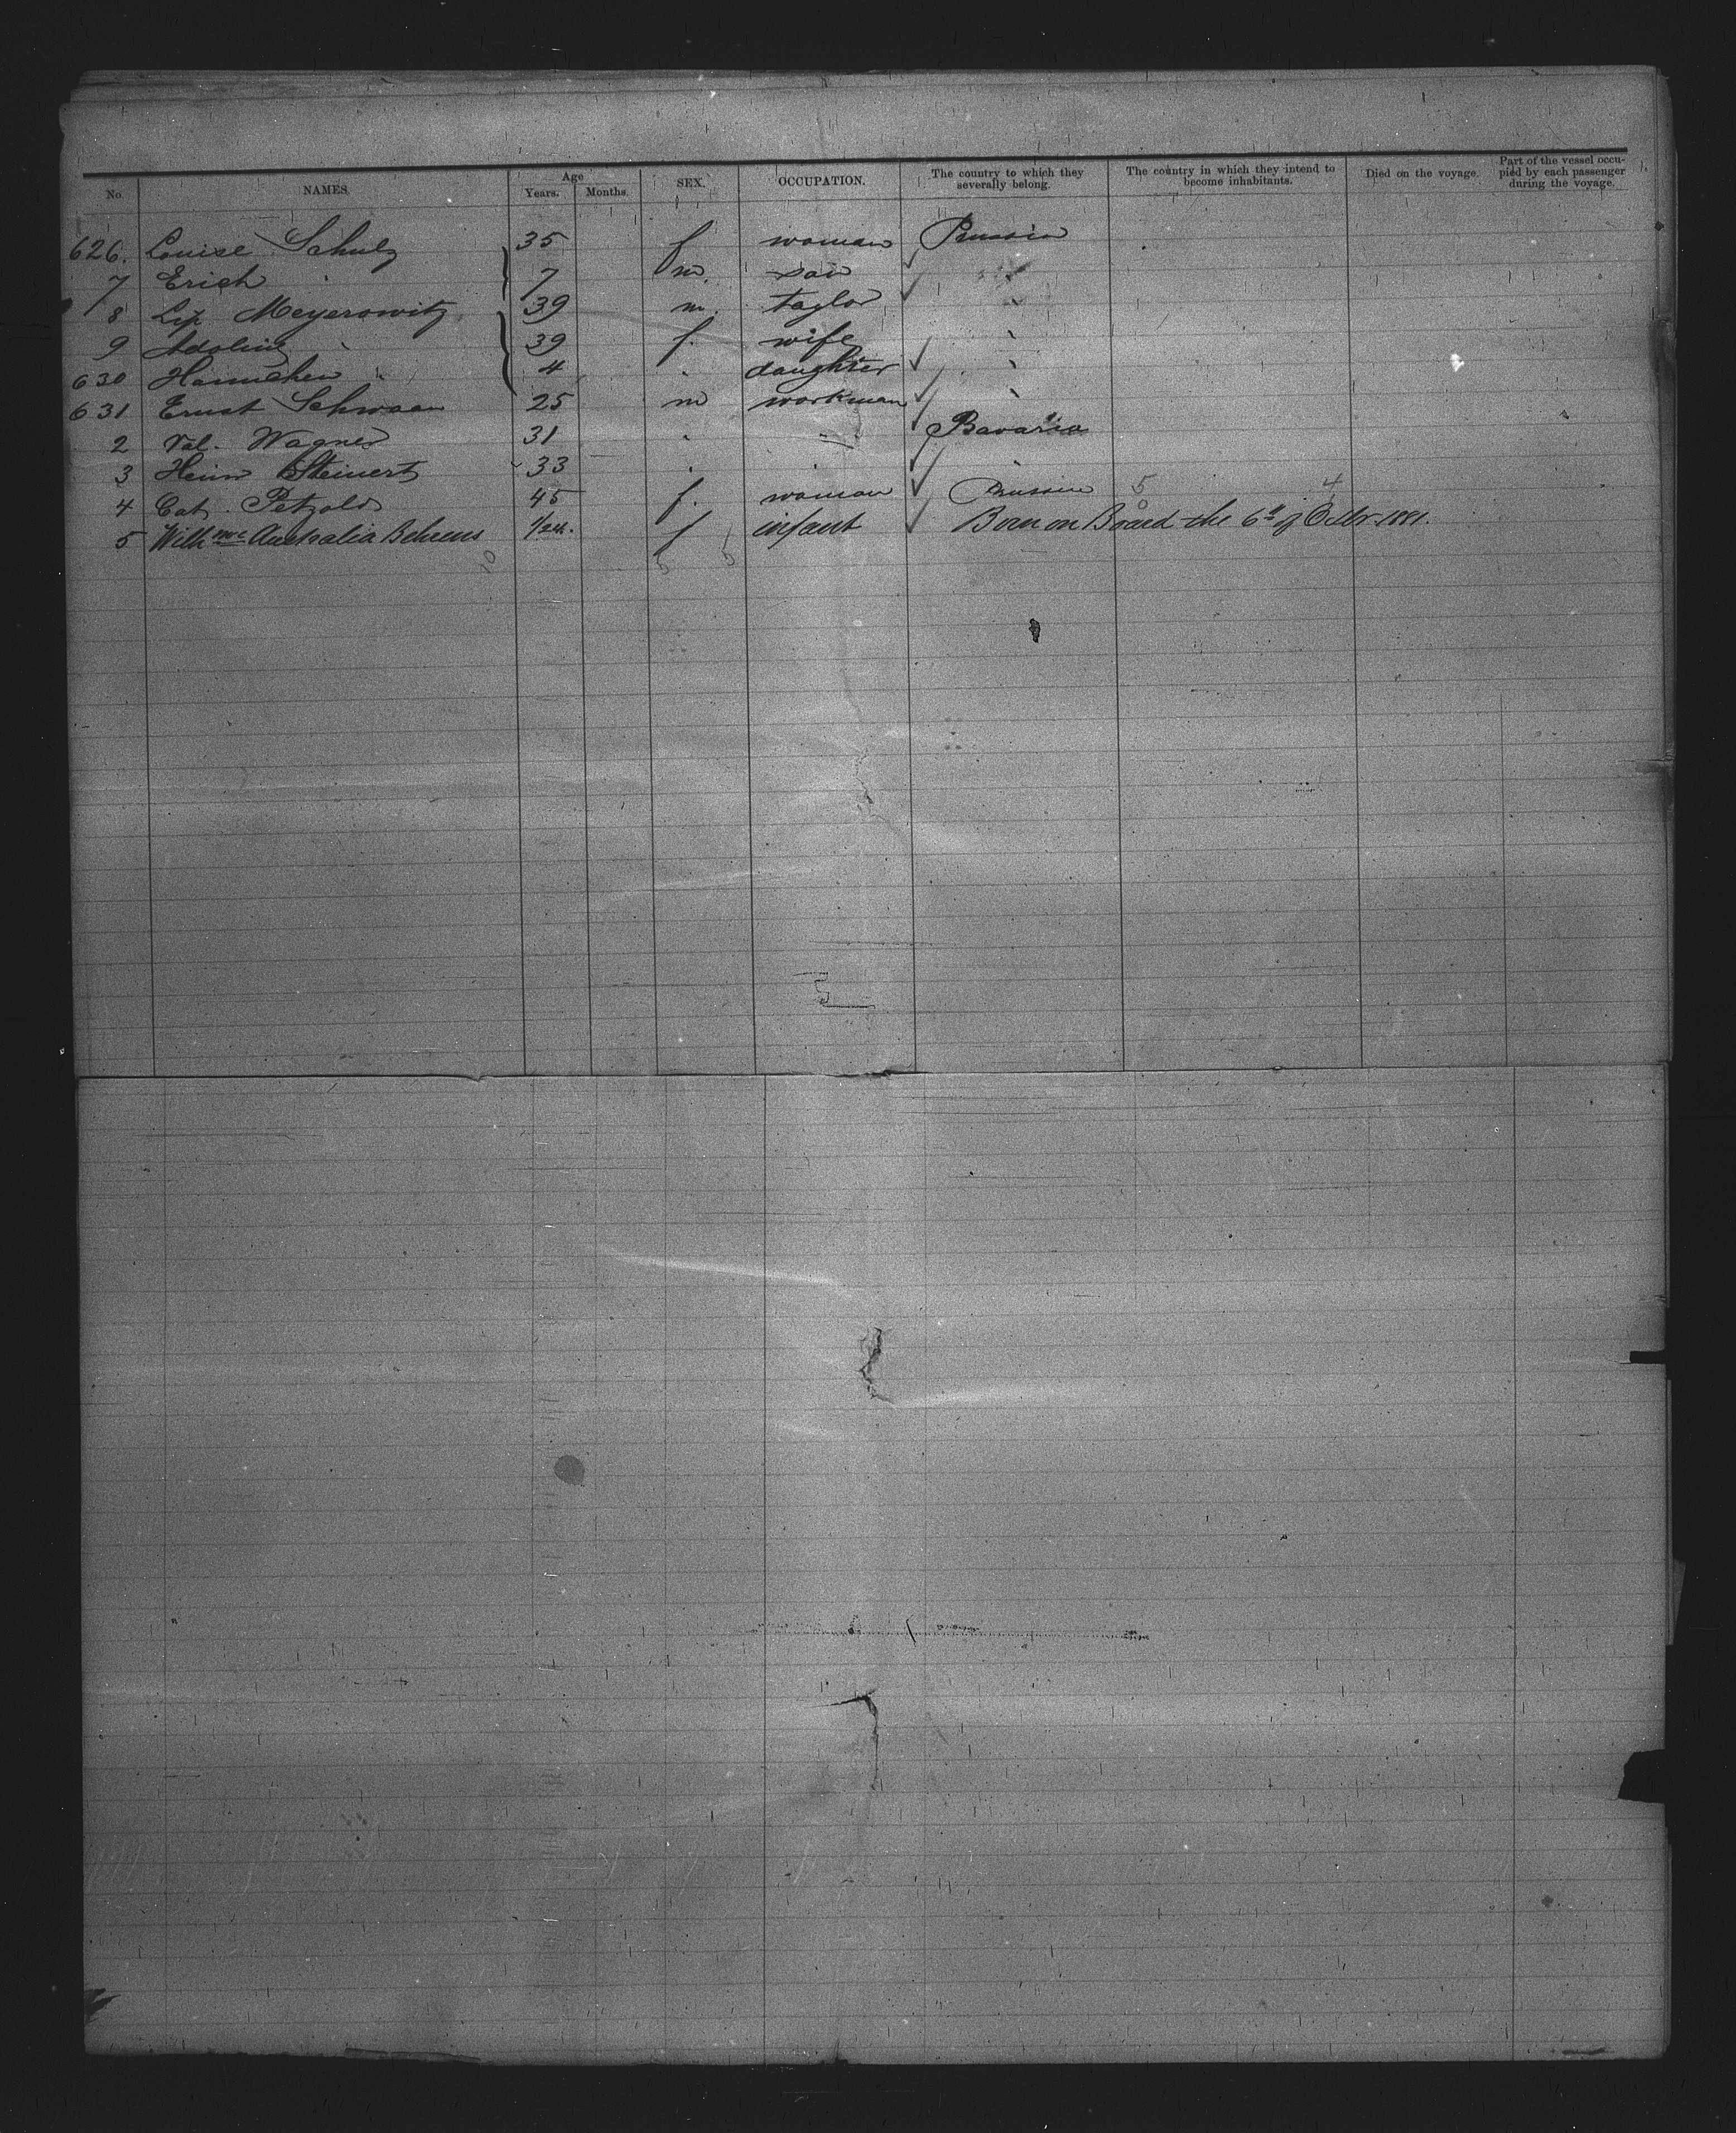 No. NAMES. Age Years. Months. SEX. OCCUPATION. The country to which they severally belong. The country in which they intend to become inhabitants. Died on the voyage. Part of the vessel occupied by each passenger during the voyage.
626. Louise Schulz 35 f woman Prussia
7 Erich " 7 m. son "
8 Lip Meyerowitz 39 m. taylor "
9 Adoline " 39 f. wife "
630 Hannchen " 4 " daughter "
631 Ernst Schwaan 25 m workman "
2 Val. Wagner 31 " " Bavaria
3 Heinr Steinert 33 " " "
4 Cat. Petzold 45 f. woman Prussia 5 4
5 Wilhme Australia Behrens f infant Born on Board the 6th of Octbr. 1881.
10 5 5